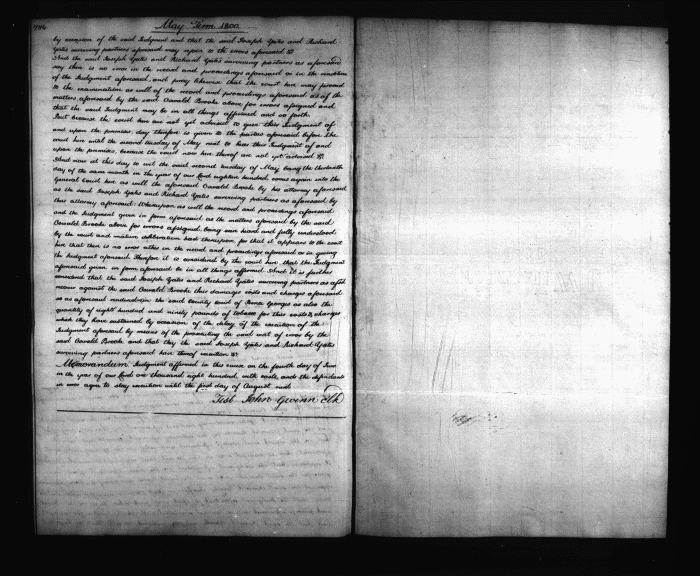 May Term 1800
by occasion of the said Judgment and that the said Joseph Yates and Richard
Yates surviving partners aforesaid may rejoin to the errors aforesaid &c
And the said Joseph Yates and Richard Yates surviving partners as aforesaid
say there is no error in the record and proceedings aforesaid or in the rendition
of the Judgment aforesaid, and pray likewise that the court here may proceed
to the examination as well of the record and proceedings aforesaid as of the
matters aforesaid by the said Oswald Brooke above for errors assigned and
that the said Judgment may be in all things affirmed and so forth
But because the court here are not yet advised to give their Judgment of
and upon the premises, day therefore is given to the parties aforesaid before the
court here until the second tuesday of May next to hear their Judgment of and
upon the premises, because the court now here thereof are not yet advised &c
And now at this day to wit the said second tuesday of May, being the thirteenth
day of the same month in the year of our Lord eighteen hundred, come again into the
General Court here as well the aforesaid Oswald Brooke by his attorney aforesaid
as the said Joseph Yates and Richard Yates surviving partners as aforesaid, by
their attorney aforesaid: Whereupon as well the record and proceedings aforesaid
and the Judgment given in form aforesaid as the matters aforesaid by the said
Oswald Brooke above for errors assigned, being seen heard and fully understood
by the court and mature deliberation had thereupon, for that it appears to the court
here that there is no error either in the record and proceedings aforesaid or in giving
the Judgment aforesaid Therefore it is considered by the court here that the Judgment
aforesaid given in form aforesaid be in all things affirmed. And it is further
considered that the said Joseph Yates and Richard Yates surviving partners as aforesd
recover against the said Oswald Brooke their damages costs and charges aforesaid
so as aforesaid rendered in the said County Court of Prince Georges as also the
quantity of eight hundred and ninety pounds of tobacco for their costs & charges
which they have sustained by occasion of the delay of the execution of the
Judgment aforesaid by means of the prosecuting the said writ of error by the
said Oswald Brooke and that they the said Joseph Yates and Richard Yates
surviving partners aforesaid have thereof execution &c
Memorandum Judgment affirmed in this cause on the fourth day of June
in the year of our Lord one thousand eight hundred, with costs, and the defendants
in error agree to stay execution until the first day of August next
Test John Gwinn Clk